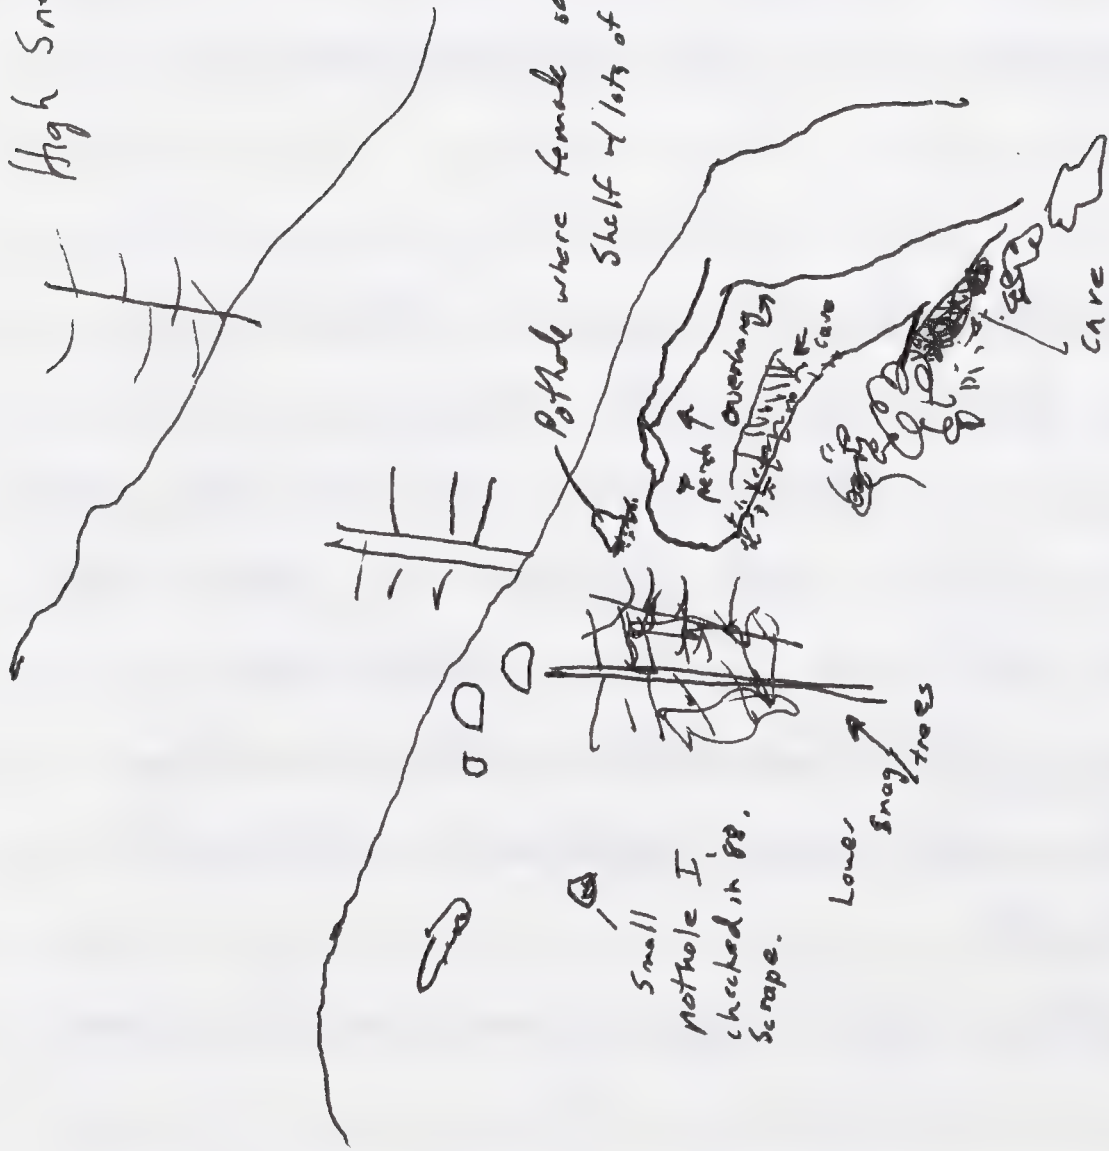 High
Pothole where female
Shelf w/ lots of
perch
overhang
cave
Small
pothole I
checked in '88.
Scrape.
Lower
snag
trees
cave